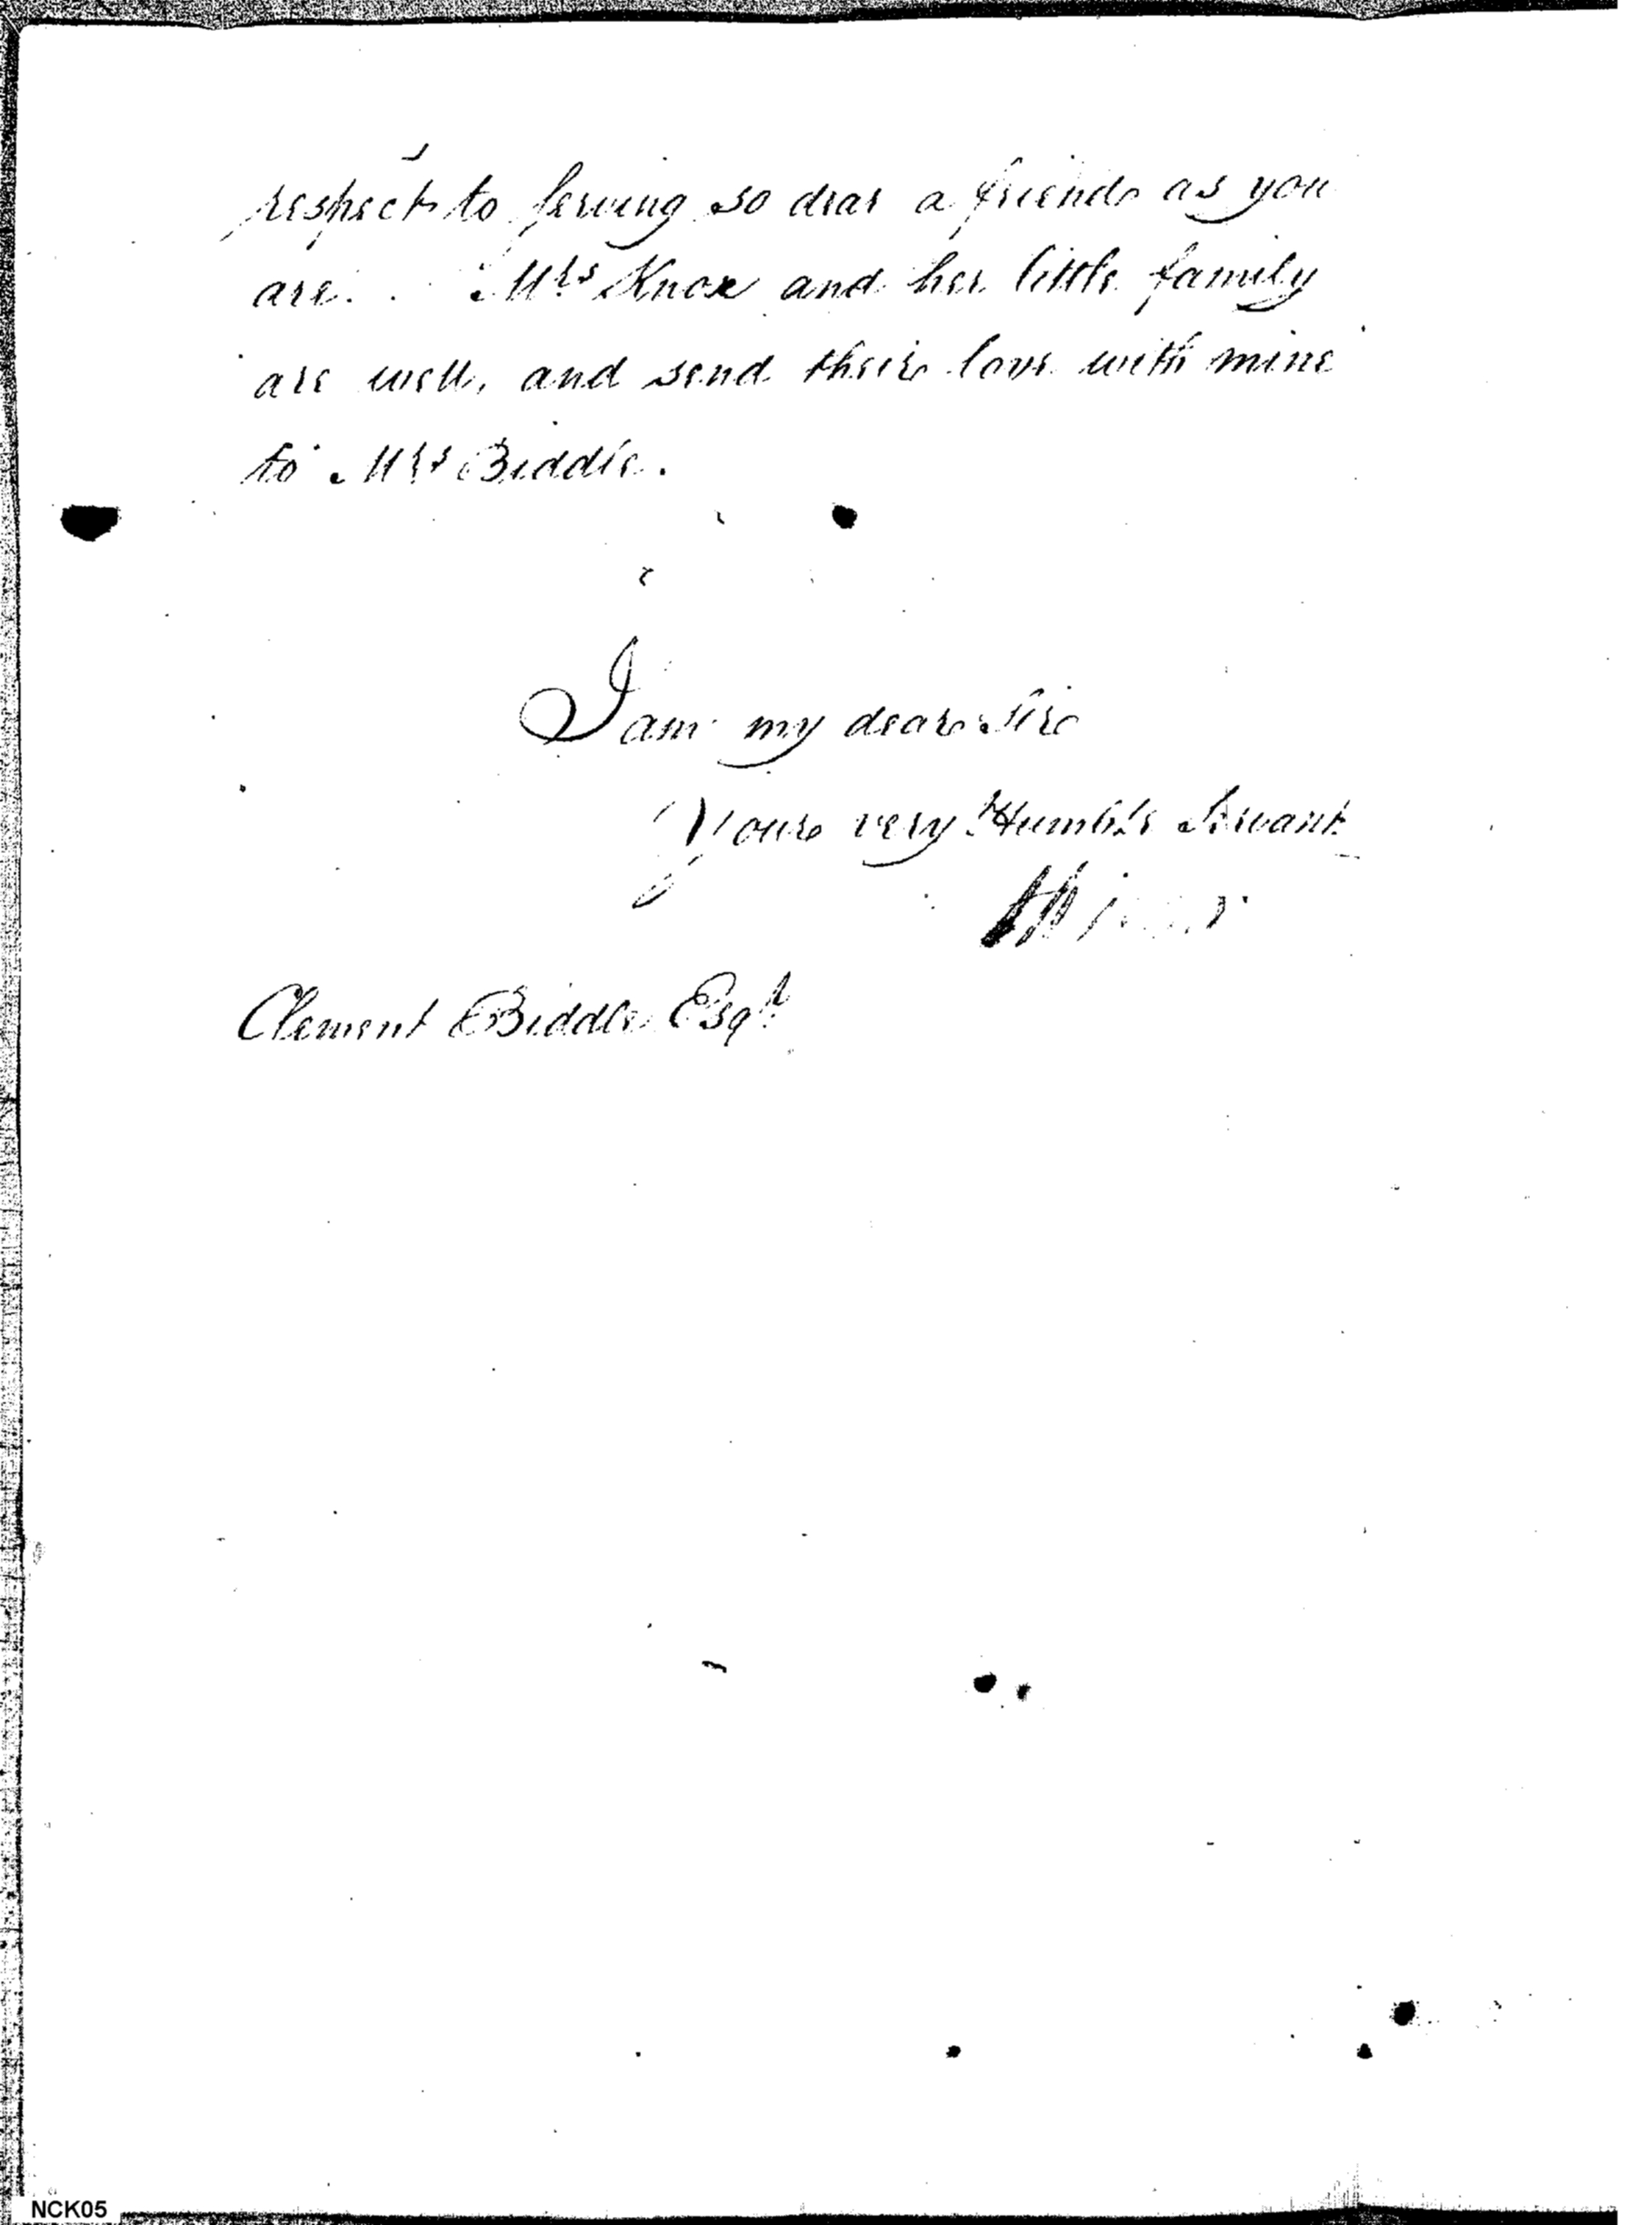 respect to serving so dear a friend as you
are. Mrs Knox and her little family
are well, and send their love with mine
to Mrs Biddle.
I am my dear Sir
Your very Humble Servant
HKnox
Clement Biddle Esqr
NCK05